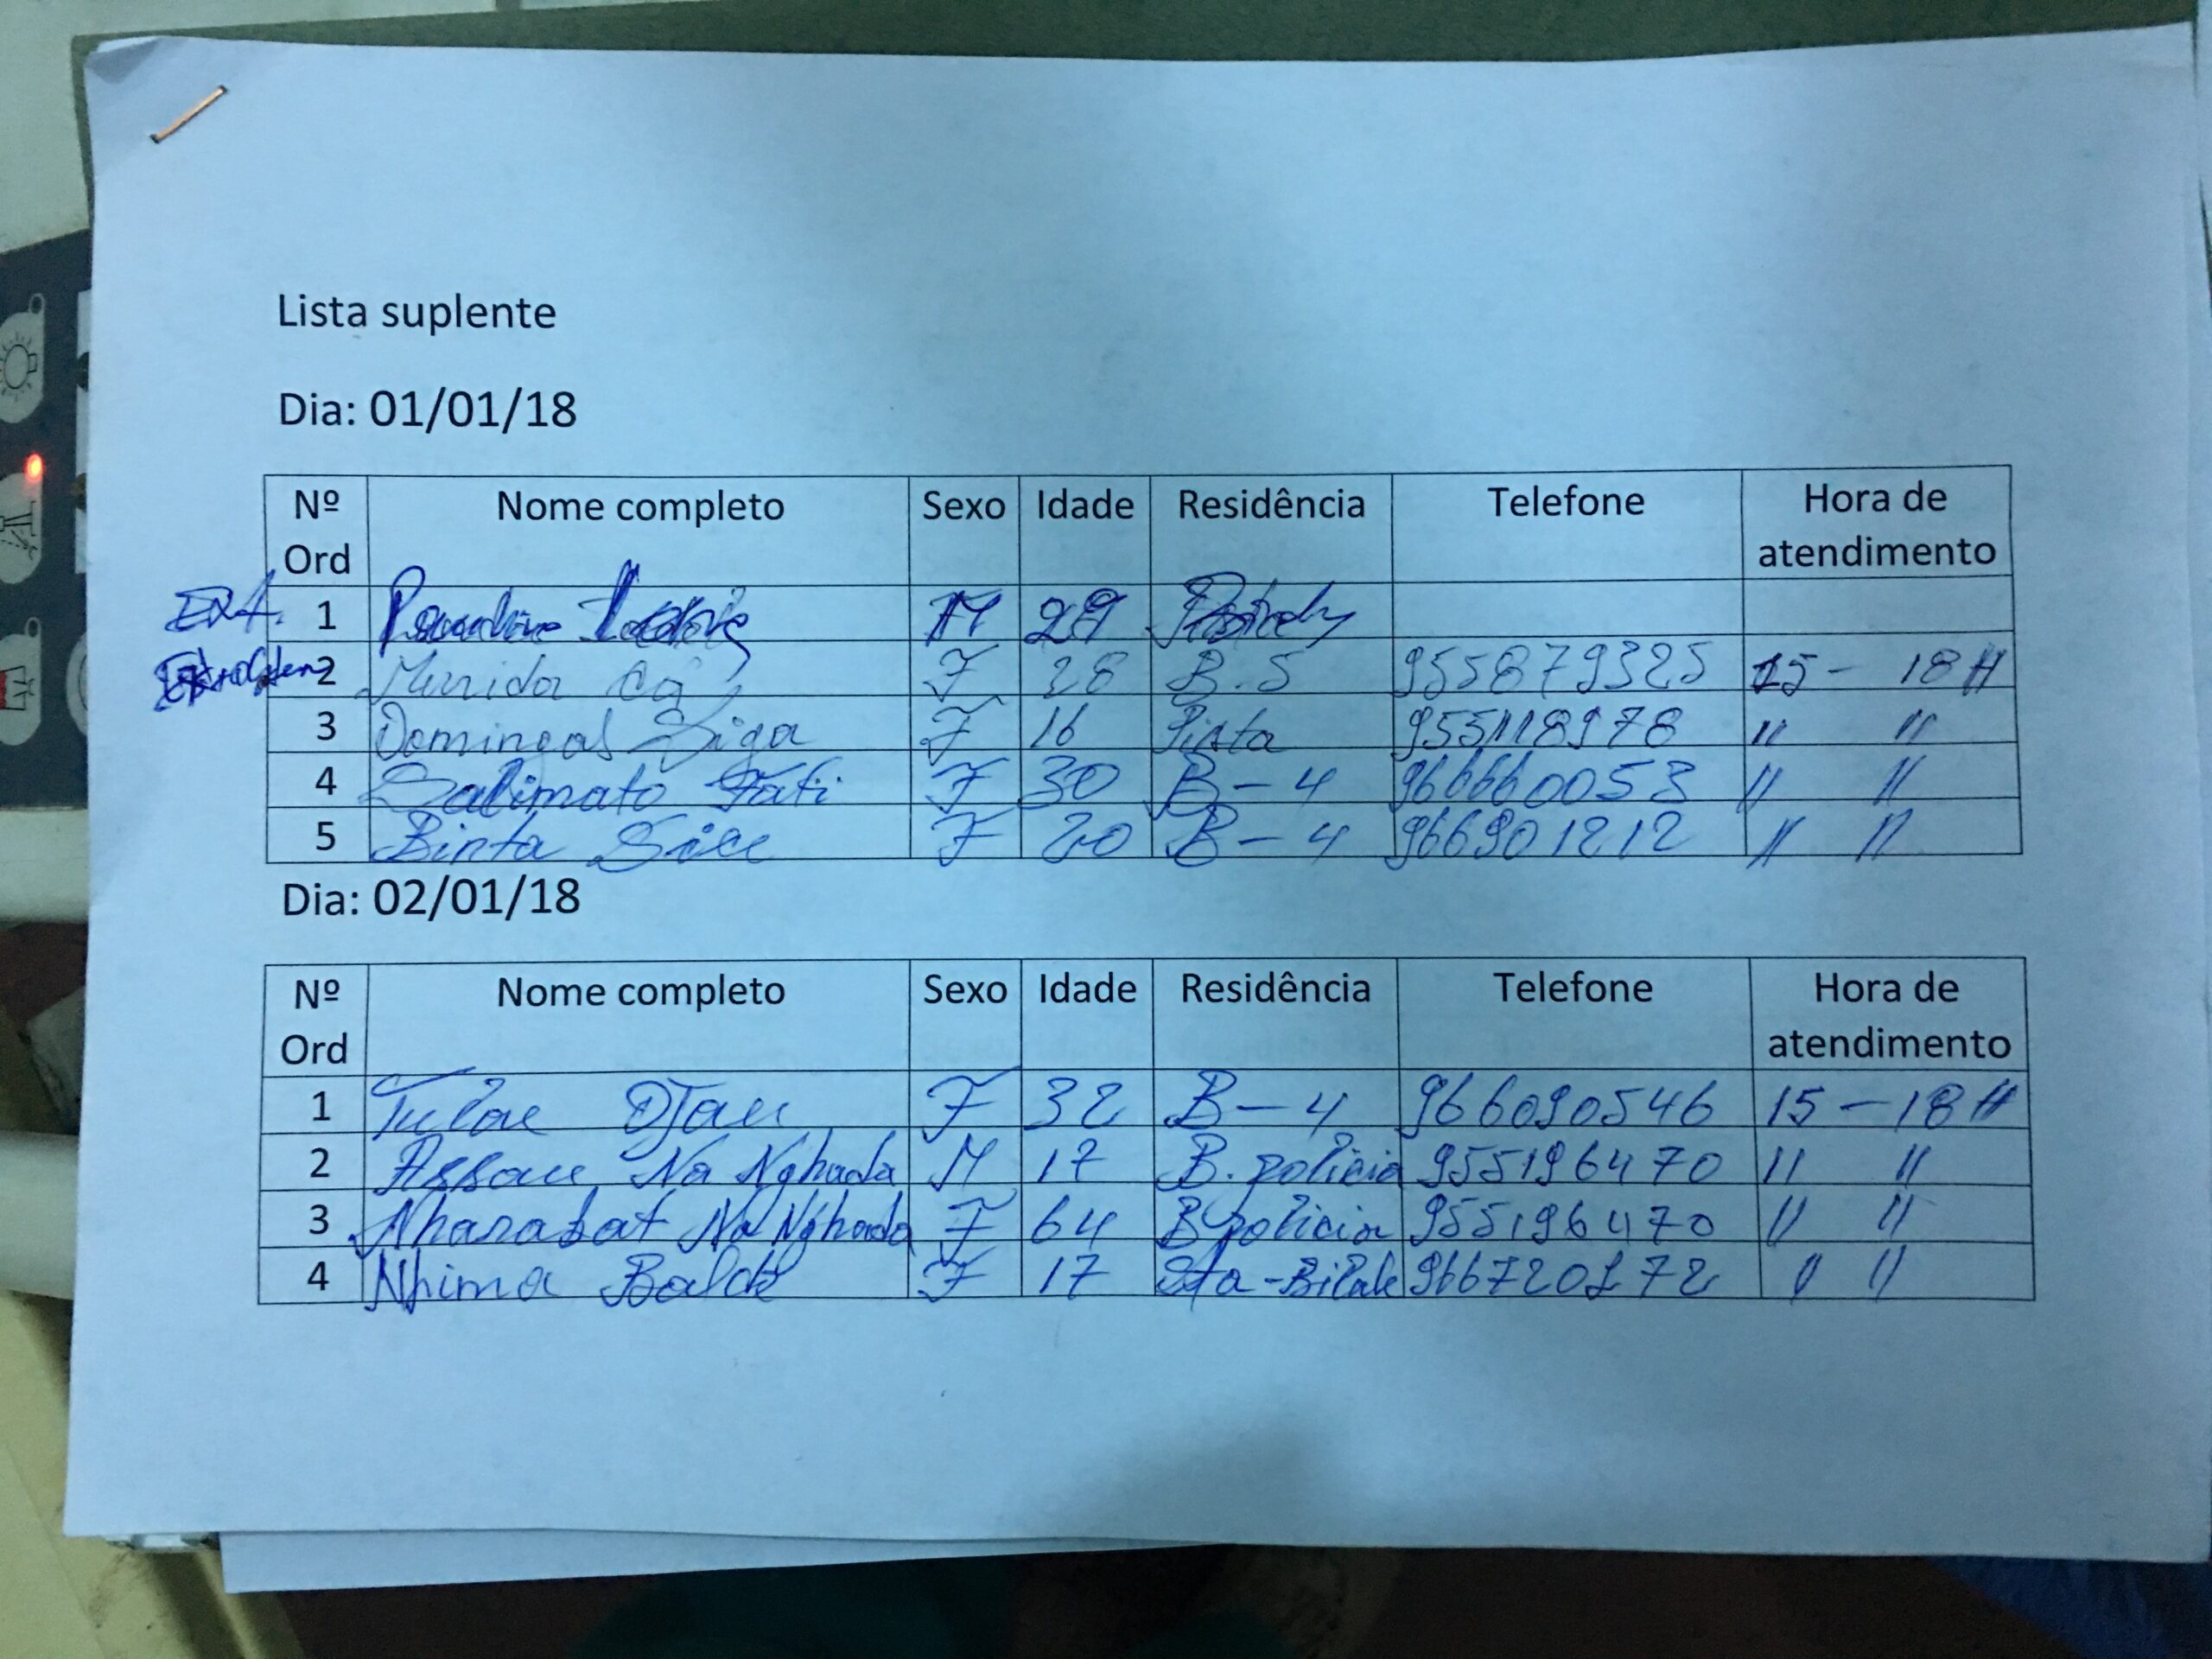 Lista suplente
Dia: 01/01/18
Nº Ord Nome completo Sexo Idade Residência Telefone Hora de atendimento
1 M 29
2 Munida Cá F 28 B.5 955879325 15 - 18H
3 Domingas Siga F 16 Pista 955118978 " "
4 Salimato Fati F 30 B-4 966660053 " "
5 Binta F 20 B-4 966901212 " "
Dia: 02/01/18
Nº Ord Nome completo Sexo Idade Residência Telefone Hora de atendimento
1 Tulae Djau F 32 B-4 966090546 15 - 18H
2 Assau Na Nghada M 17 B. policia 955196470 " "
3 Nharabat Na Nghada F 64 B policia 955196470 " "
4 Nhima Baldé F 17 966720172 " "